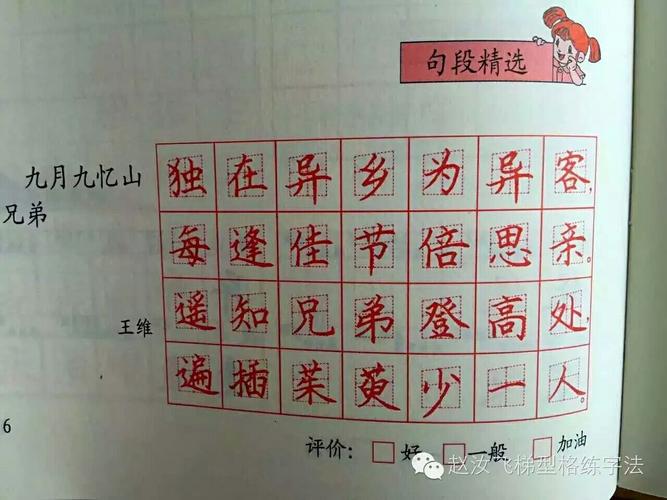 句段精选
九月九忆山
兄弟
王维
独在异乡为异客,
每逢佳节倍思亲。
遥知兄弟登高处,
遍插茱萸少一人。
6
评价: □好 □一般 □加油
赵汝飞梯型格练字法